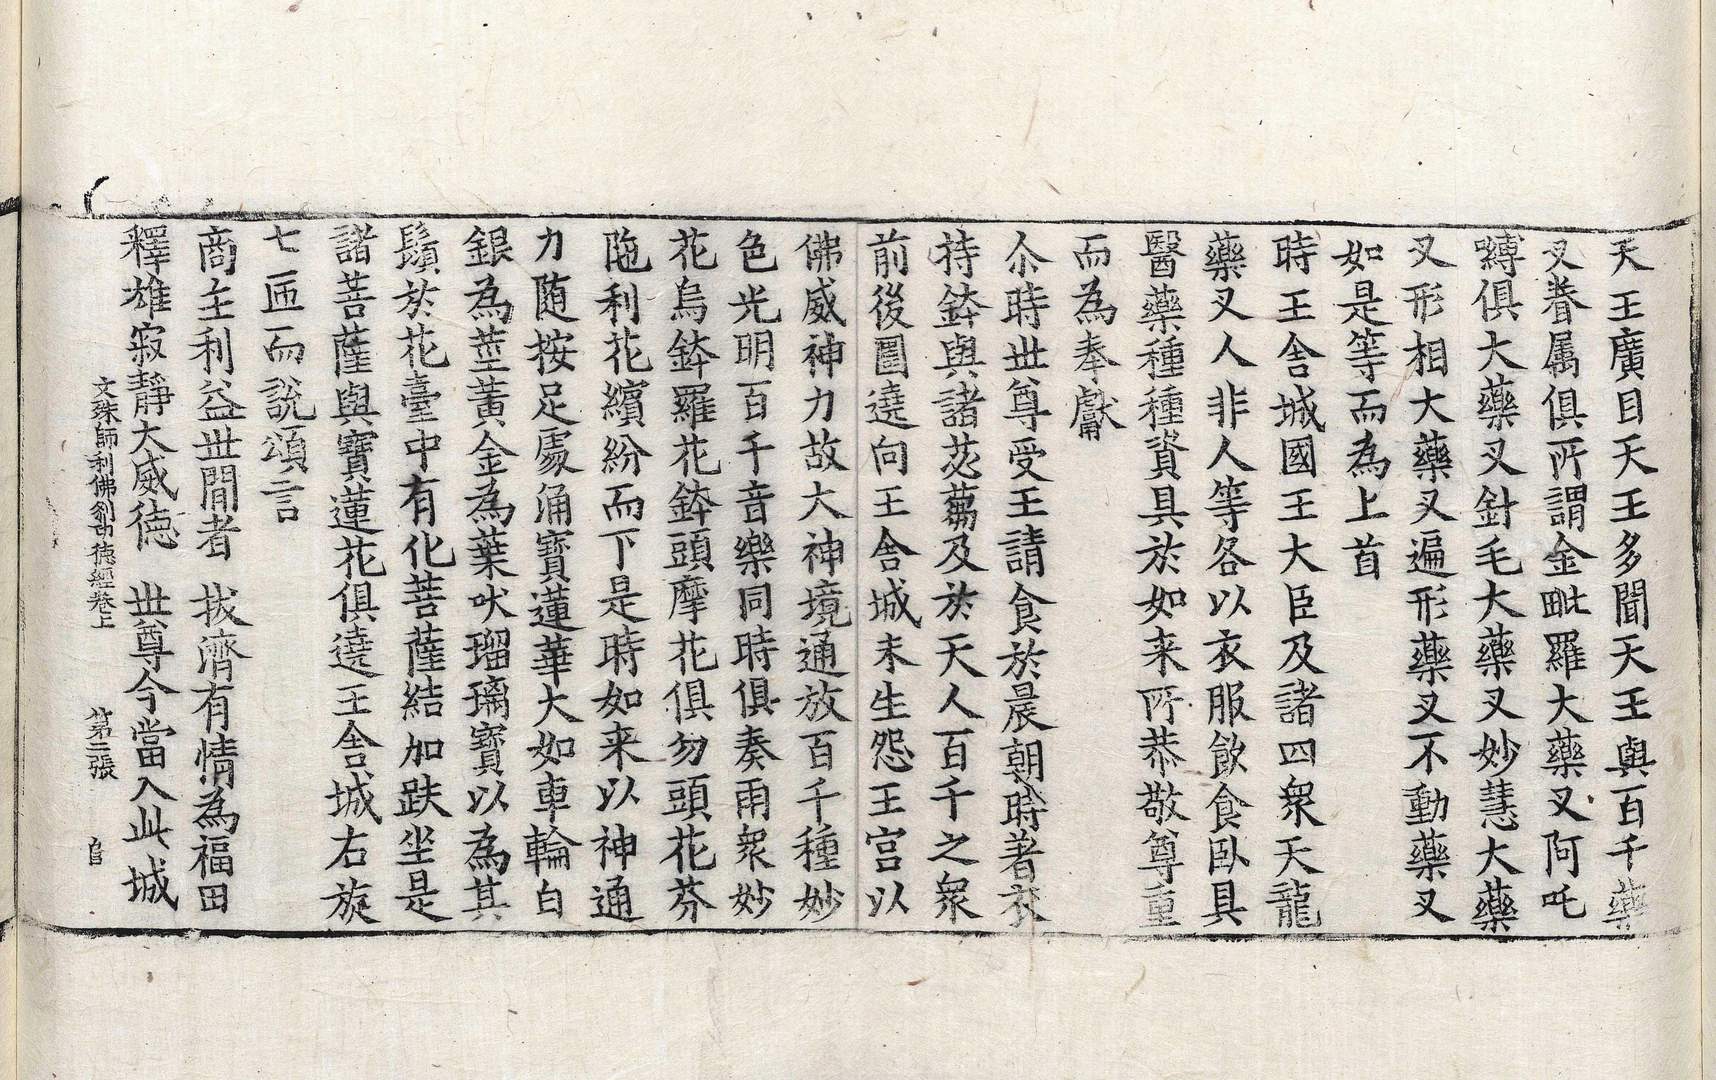 天王廣目天王多聞天王與百千藥
叉眷属俱所謂金毗羅大藥叉阿吒
嚩俱大藥叉針毛大藥叉妙慧大藥
叉形相大藥叉遍形藥叉不動藥叉
如是等而為上首
時王舍城國王大臣及諸四衆天龍
藥叉人非人等各以衣服飲食卧具
醫藥種種資具於如来所恭敬尊重
而為奉獻
尒時世尊受王請食於晨朝時著衣
持鉢與諸苾蒭及於天人百千之衆
前後圍遶向王舍城未生怨王宫以
佛威神力故大神境通放百千種妙
色光明百千音樂同時俱奏雨衆妙
花烏鉢羅花鉢頭摩花俱勿頭花芬
陁利花繽紛而下是時如来以神通
力随按足處涌寳蓮華大如車輪白
銀為莖黄金為葉吠瑠璃寳以為其
鬚於花臺中有化菩薩結加趺坐是
諸菩薩與寳蓮花俱遶王舍城右旋
七匝而說頌言
商主利益世間者　拔濟有情為福田
釋雄寂靜大威徳　世尊今當入此城
文殊師利佛刹功徳經卷上　第二張　自